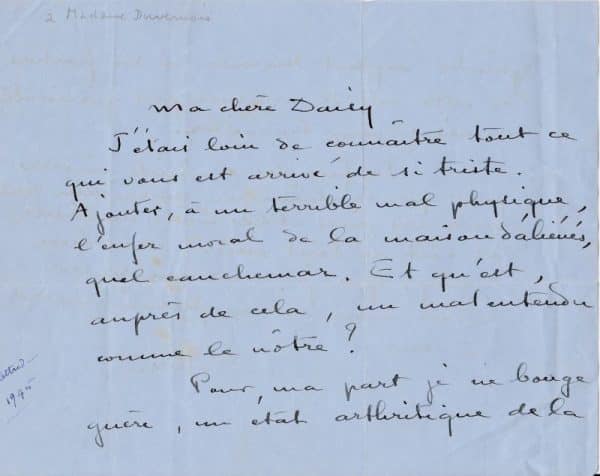 a Madame Duvernois
Ma chère Daisy
J'étais loin de connaître tout ce
qui vous est arrivé de si triste.
Ajouter, à un terrible mal physique,
l'enfer moral de la maison d'aliénés,
quel cauchemar. Et qu'est,
auprès de cela, un malentendu
comme le nôtre ?
Pour, ma part je ne bouge
guère, un état arthritique de la